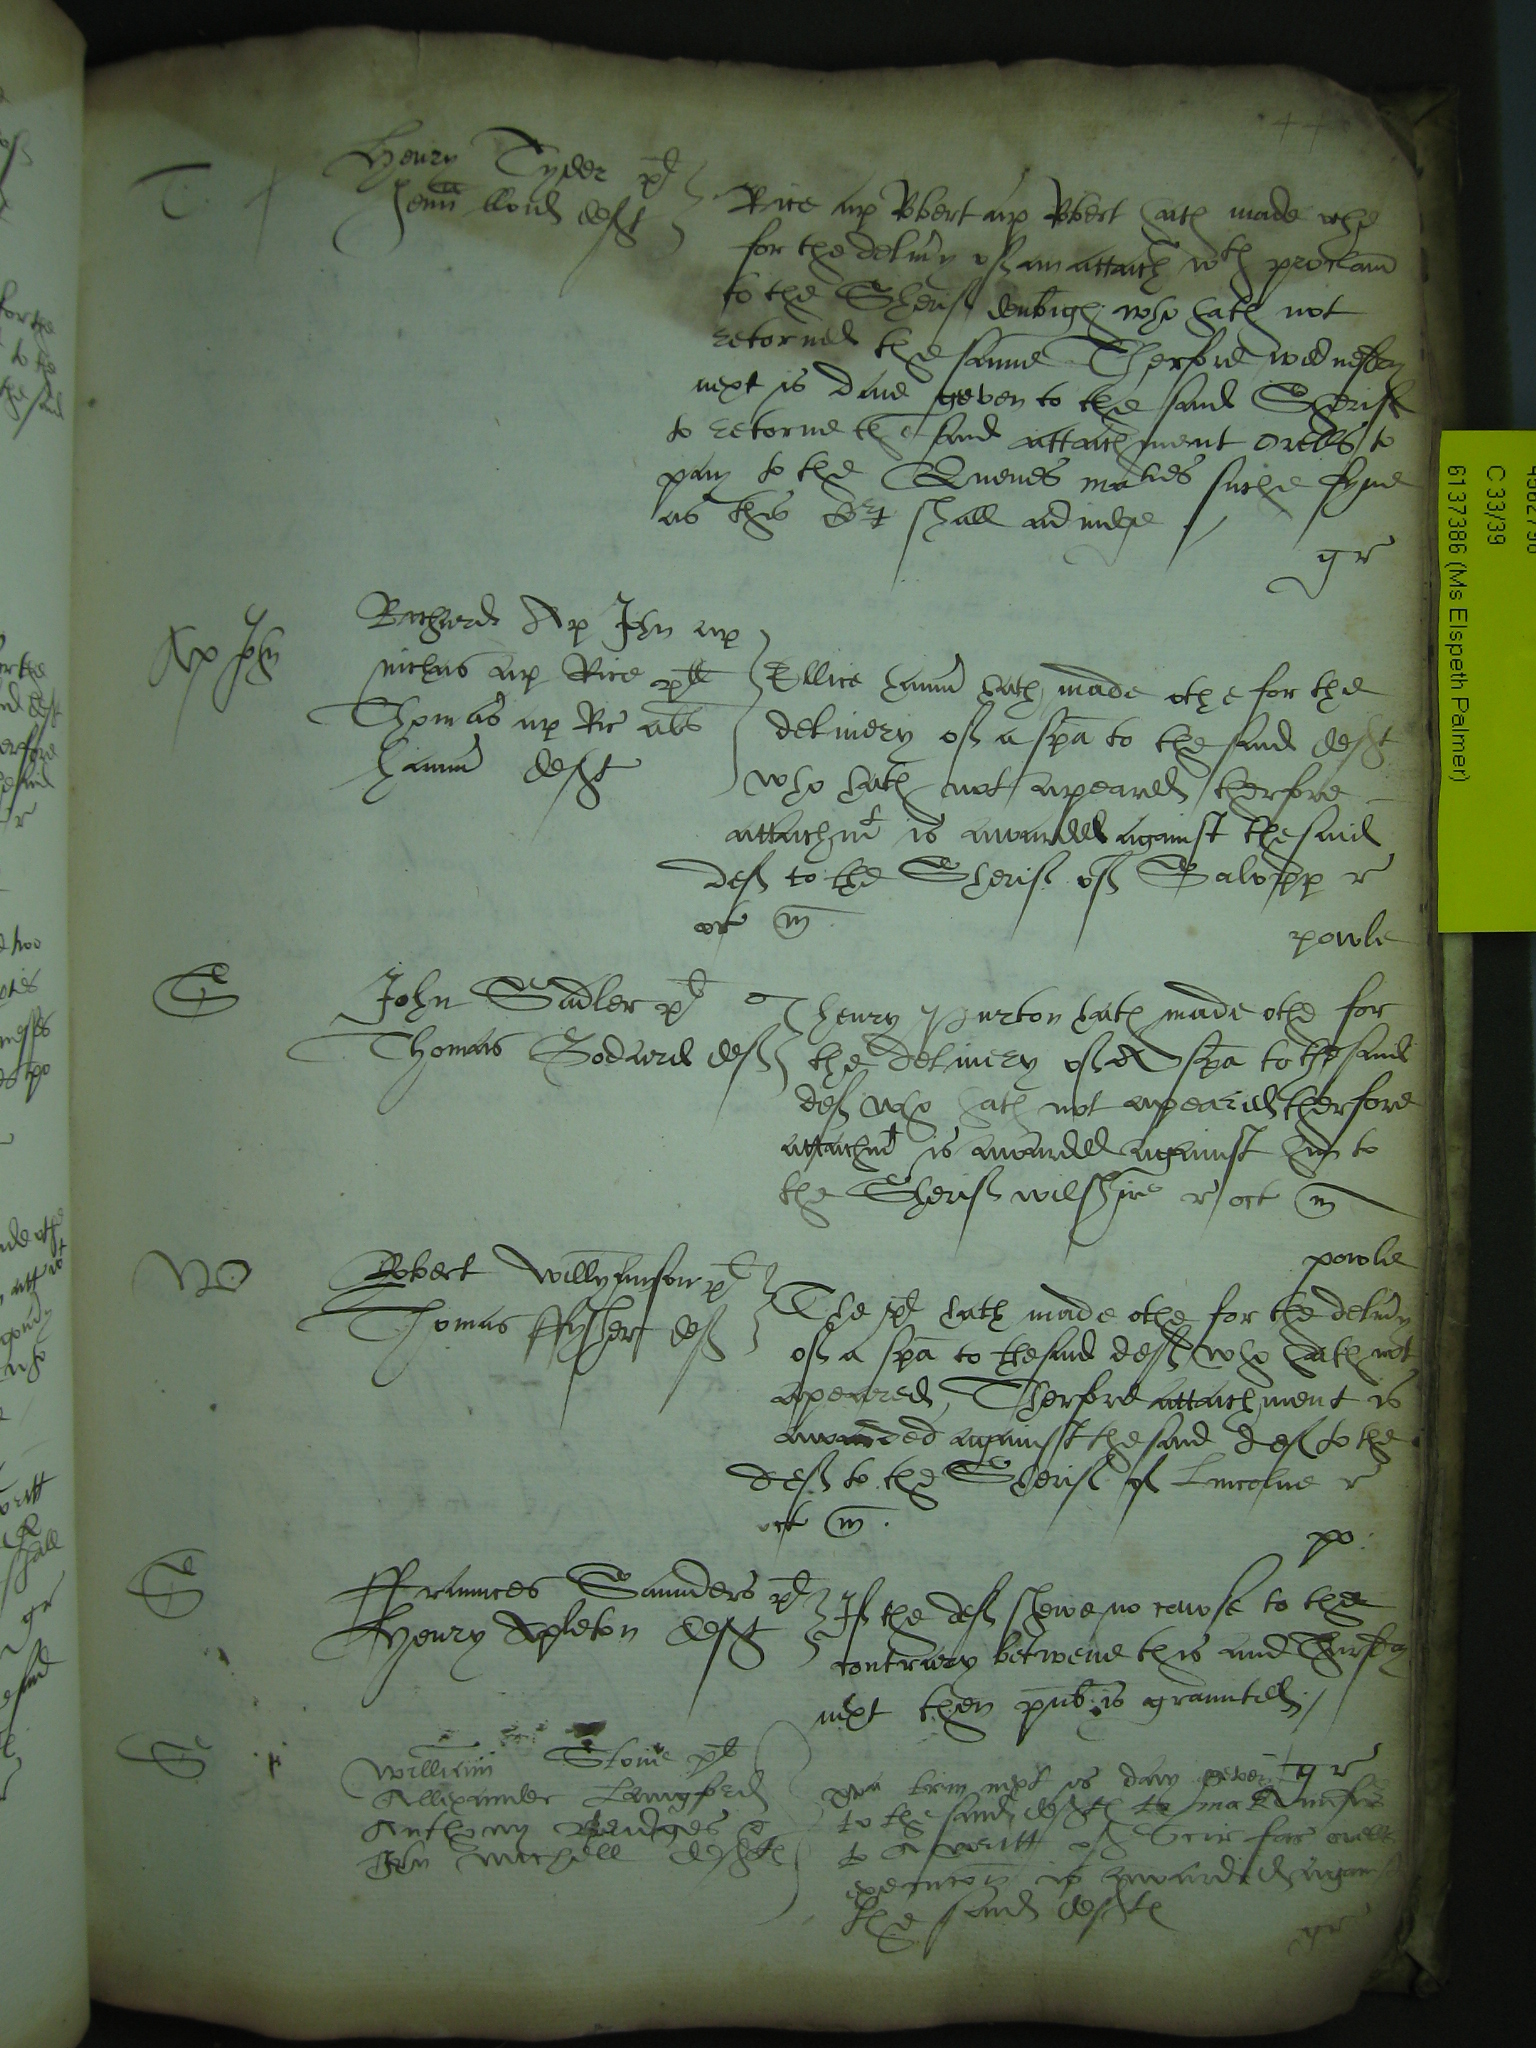 T
Henry Tyder pl
Jeuñ lloid deft
Rice ap Robert ap Robert hath made othe
for the delivy of an attach wth proclam
to the Sherif denbigh who hath not
retorned the same Therfore wednesday
next is daie geven to the said Sherif
to retorne the said attachment or ells to
pay to the Quenes maties suche fyne
as this Crt shall adiudge
gr
Ap John
Richard Ap John ap
nichas ap Rice plt
Thomas ap Ric als
hanm deft
Ellice hanm hath made othe for the
delivery of a spa to the said deft
who hath not apeared therfore
attachmt is awarded against the said
def to the Sherif of Salopp r
oct m
powle
S
John Sadler pl
Thomas Godard def
henry Purton hath made othe for
the delivery of A spa to the said
def who hath not apeared therfore
attachmt is awarded against him to
the Sherif wilshire r oct m
powle
W
Robert Willyamson pl
Thomas ffyssher def
The pl hath made othe for the delivy
of a spa to the said deft who hath not
apeared, Therfore attachment is
awarded against the said def to the
def to the Sherif of Lincolne r
oct m
po
S
ffraunces Saunders pl
Henry Apleton deft
If the def shewe no cawse to the
contrary betwene this and Thursday
next then pub is graunted
gr
S
William Stone pl
Allexander Langford
Anthony Bridges &
John Michell defts
trm next is day geven
to the said defts to mak answer
to A writt of Scir fac or ells
execucon is awarded against
the said defts
gr
C 33/39
6137386 (Ms Elspeth Palmer)